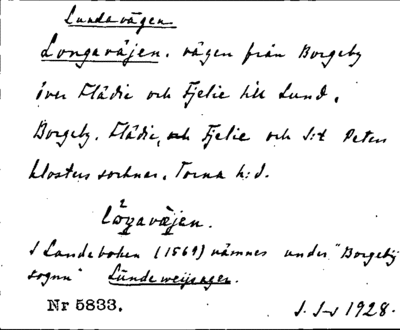 Lundavägen
Longaväjen. vägen från Borgeby
över Flädie och Fjelie till Lund.
Borgeby, Flädie, och Fjelie och S:t Peters
klosters socknar, Torna h:d.
I Lundeboken (1569) nämnes under "Borgeby
sognn" Lünde weijsagen.
Nr 5833.
1928.